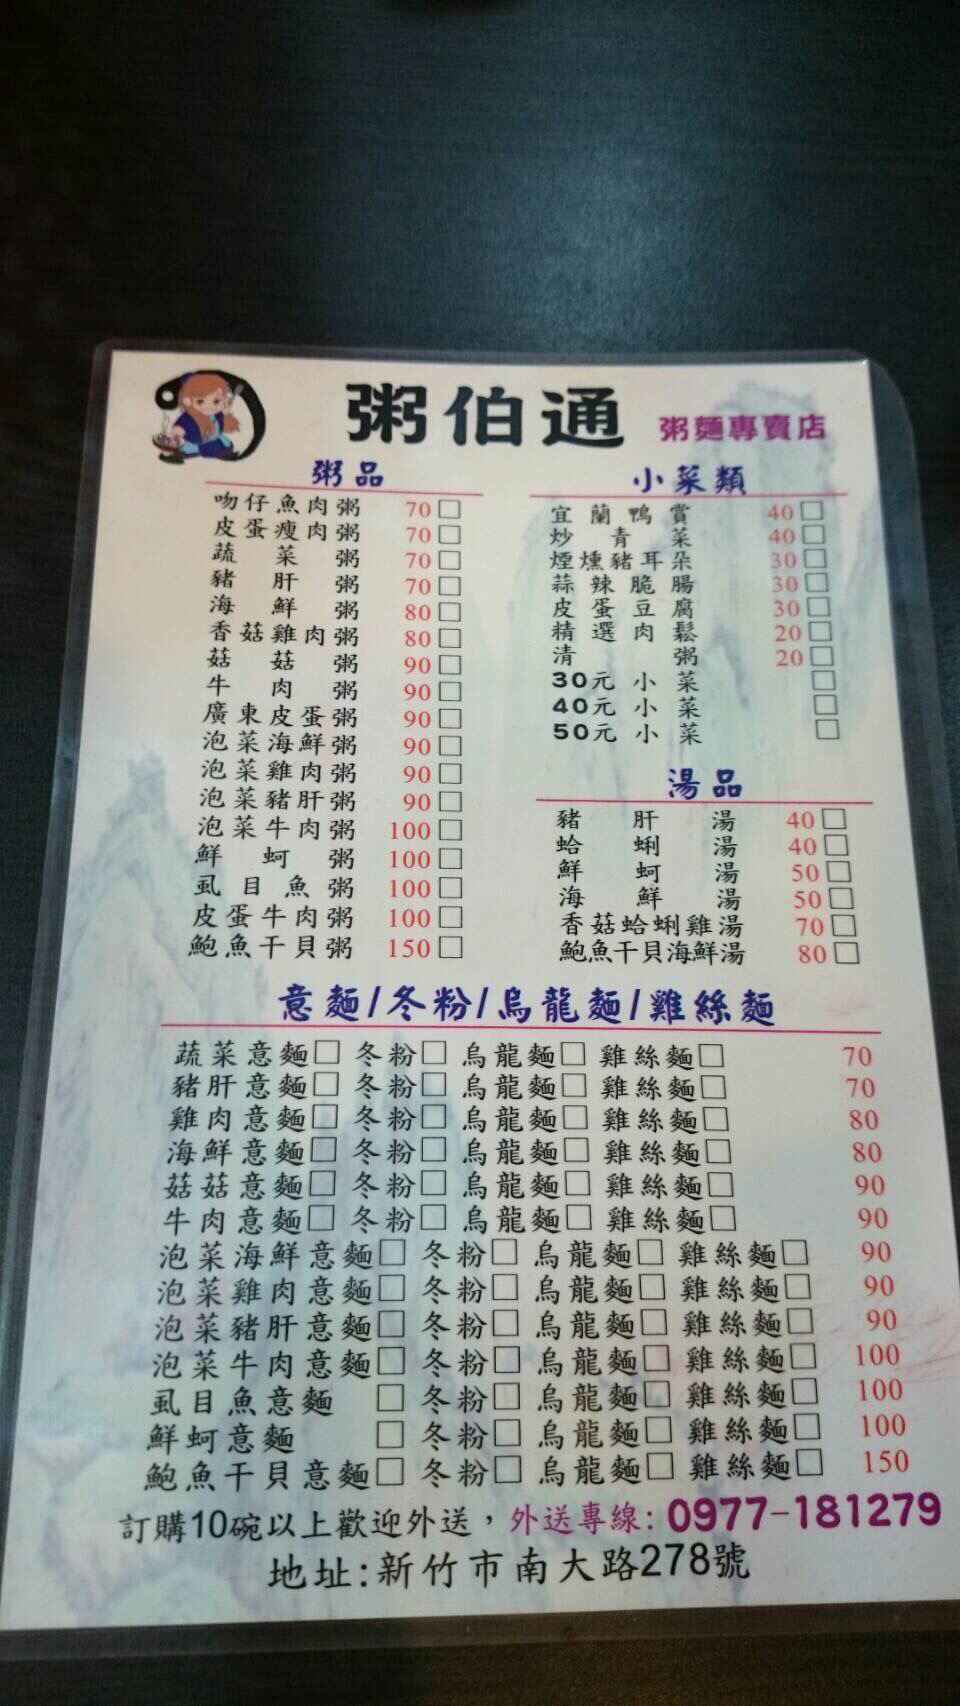 粥伯通 粥麵專賣店
粥品
吻仔魚肉粥 70□
皮蛋瘦肉粥 70□
蔬菜粥 70□
豬肝粥 70□
海鮮粥 80□
香菇雞肉粥 80□
菇菇粥 90□
牛肉粥 90□
廣東皮蛋粥 90□
泡菜海鮮粥 90□
泡菜雞肉粥 90□
泡菜豬肝粥 90□
泡菜牛肉粥 100□
鮮蚵粥 100□
虱目魚粥 100□
皮蛋牛肉粥 100□
鮑魚干貝粥 150□
小菜類
宜蘭鴨賞 40□
炒青菜 40□
煙燻豬耳朵 30□
蒜辣脆腸 30□
皮蛋豆腐 30□
精選肉鬆 20□
清粥 20□
30元小菜 □
40元小菜 □
50元小菜 □
湯品
豬肝湯 40□
蛤蜊湯 40□
鮮蚵湯 50□
海鮮湯 50□
香菇蛤蜊雞湯 70□
鮑魚干貝海鮮湯 80□
意麵/冬粉/烏龍麵/雞絲麵
蔬菜意麵□ 冬粉□ 烏龍麵□ 雞絲麵□ 70
豬肝意麵□ 冬粉□ 烏龍麵□ 雞絲麵□ 70
雞肉意麵□ 冬粉□ 烏龍麵□ 雞絲麵□ 80
海鮮意麵□ 冬粉□ 烏龍麵□ 雞絲麵□ 80
菇菇意麵□ 冬粉□ 烏龍麵□ 雞絲麵□ 90
牛肉意麵□ 冬粉□ 烏龍麵□ 雞絲麵□ 90
泡菜海鮮意麵□ 冬粉□ 烏龍麵□ 雞絲麵□ 90
泡菜雞肉意麵□ 冬粉□ 烏龍麵□ 雞絲麵□ 90
泡菜豬肝意麵□ 冬粉□ 烏龍麵□ 雞絲麵□ 90
泡菜牛肉意麵□ 冬粉□ 烏龍麵□ 雞絲麵□ 100
虱目魚意麵 □ 冬粉□ 烏龍麵□ 雞絲麵□ 100
鮮蚵意麵 □ 冬粉□ 烏龍麵□ 雞絲麵□ 100
鮑魚干貝意麵□ 冬粉□ 烏龍麵□ 雞絲麵□ 150
訂購10碗以上歡迎外送，外送專線:0977-181279
地址:新竹市南大路278號